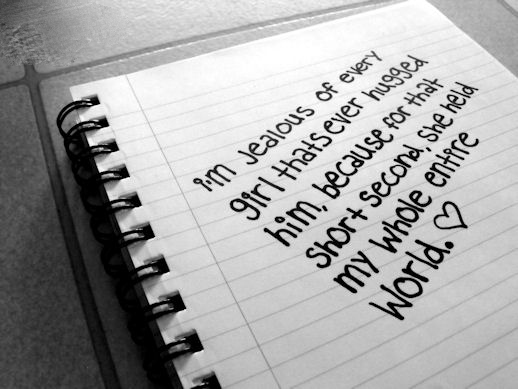 i'm jealous of every
girl thats ever hugged
him, because for that
short second, she held
my whole entire
world. ♡